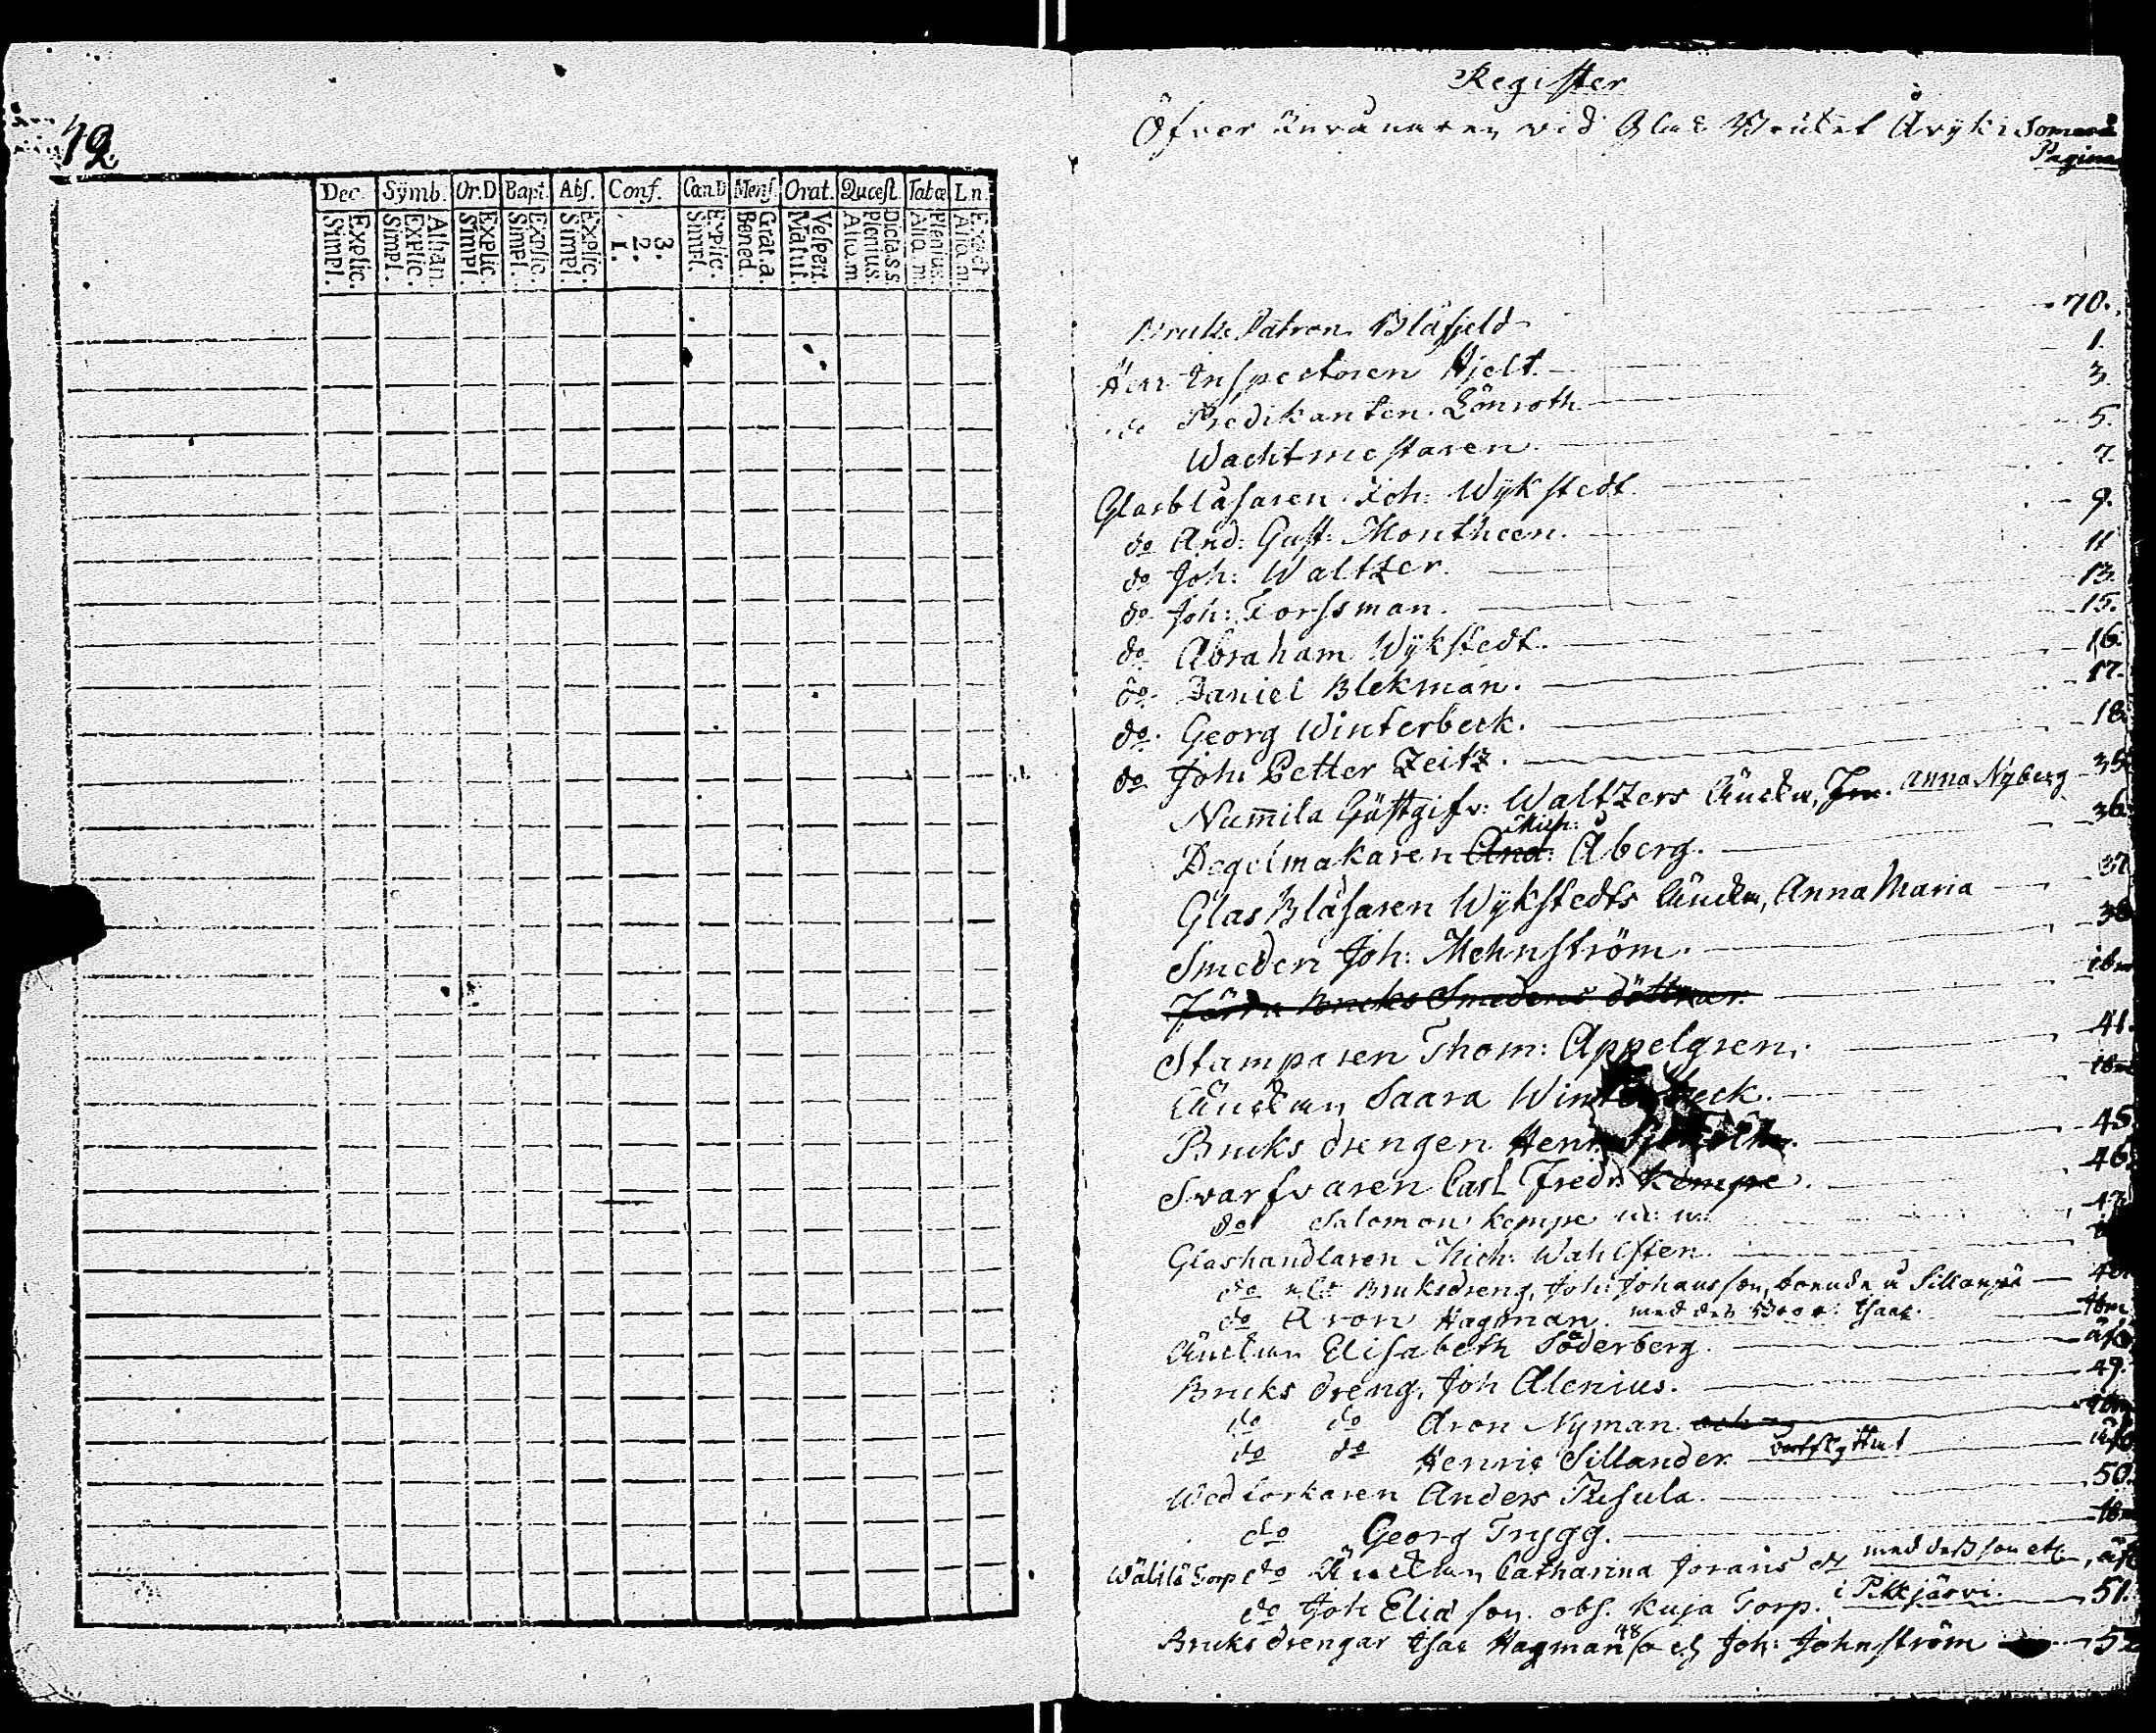 72.
Dec. Symb. Or.D Bapt. Abs. Conf. Can.D Mens. Orat. Quæst. Tabæ L.n.
Simpl. Explic. Simpl. Explic. Athan. Simpl. Explic. Simpl. Explic. Simpl. Explic. 1. 2. 3. Simpl. Explic. Bened. Grat.a. Matut. Vespert. Aliq.m Plenius. Dicta s.s. Aliq.m Plenius. Aliq.m. Exact
Register
Öfver Invånaren vid Glas Bruket Åvyki Somerå
Pagina
Bruks Patron Blåfjeld 70.
Herr Inspectoren Hjelt. 1.
do Predikanten Lönroth 3.
Wachtmestaren 5.
Glasblåsaren Joh: Wykstedt. 7.
do And: Gust: Montheen. 9.
do Joh: Waltzer. 11
do Joh: Forssman. 13.
do Abraham Wykstedt. 15.
do Daniel Blekman. 16.
do Georg Winterbeck. 17.
do Joh: Petter Zeitz. 18.
Nummila Gästgifv: Waltzers Änckn, Anna Nyberg 35
Degelmakaren And: Mich: Åberg. 36.
Glas Blåsaren Wykstedts Änckn, Anna Maria 37
Smeden Joh: Mehnström. 38
Förra Bruks Smedens döttrar. ibm
Stamparen Thom: Appelgren. 41.
Änckan Saara Winterbeck. ibm
Bruks drengen Henr. 45
Swarfvaren Carl Fredr. Kempe. 46.
do Salomon Kempe 47
Glashandlaren Mich: Wahlsten.
do Bruksdreng, Joh: Johansson, boende å Sillanpä
do Aron Hagman. med des Isaac. ibm
Änckan Elisabeth Söderberg.
Bruks dreng, Joh Alenius. 49.
do do Aron Nyman. ibm
do do Henric Sillander bortflyttat
Wedtorkaren Anders Pusula. 50.
do Georg Trygg. ibm
Torp do Änckan Catharina Jorans med dess son
do Joh Elias son. obs. Kuja Torp. i Pitkjärvi. 51.
Bruks drengar Isac Hagman 48 och Joh: Johnström